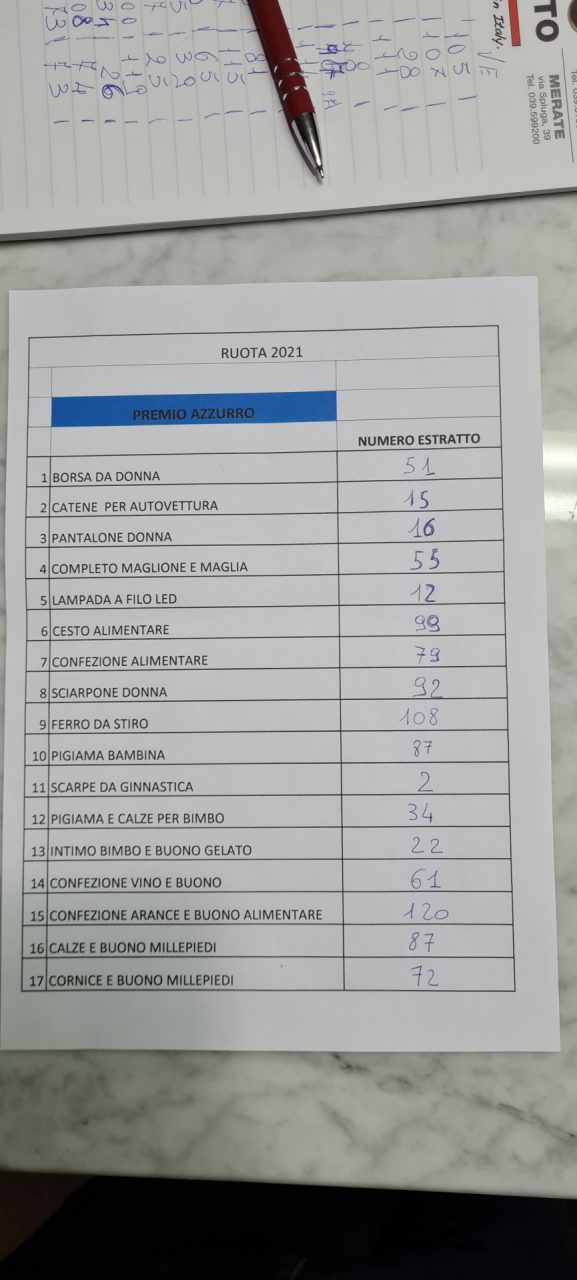 in Italy.
TO
MERATE
via Spluga, 39
Tel. 039.599200
RUOTA 2021
PREMIO AZZURRO
NUMERO ESTRATTO
1 BORSA DA DONNA 51
2 CATENE PER AUTOVETTURA 15
3 PANTALONE DONNA 16
4 COMPLETO MAGLIONE E MAGLIA 55
5 LAMPADA A FILO LED 12
6 CESTO ALIMENTARE 99
7 CONFEZIONE ALIMENTARE 79
8 SCIARPONE DONNA 92
9 FERRO DA STIRO 108
10 PIGIAMA BAMBINA 87
11 SCARPE DA GINNASTICA 2
12 PIGIAMA E CALZE PER BIMBO 34
13 INTIMO BIMBO E BUONO GELATO 22
14 CONFEZIONE VINO E BUONO 61
15 CONFEZIONE ARANCE E BUONO ALIMENTARE 120
16 CALZE E BUONO MILLEPIEDI 87
17 CORNICE E BUONO MILLEPIEDI 72